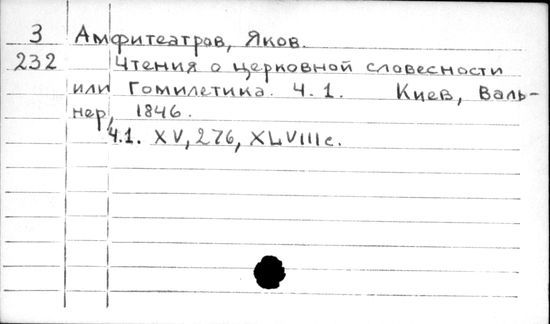 З Амфитеатров, Яков.
232 Чтения о церковной словесности
или Гомилетика. Ч. 1. Киев, Валь-
нер, 1846.
Ч.1. XV, 276, XLVIII с.